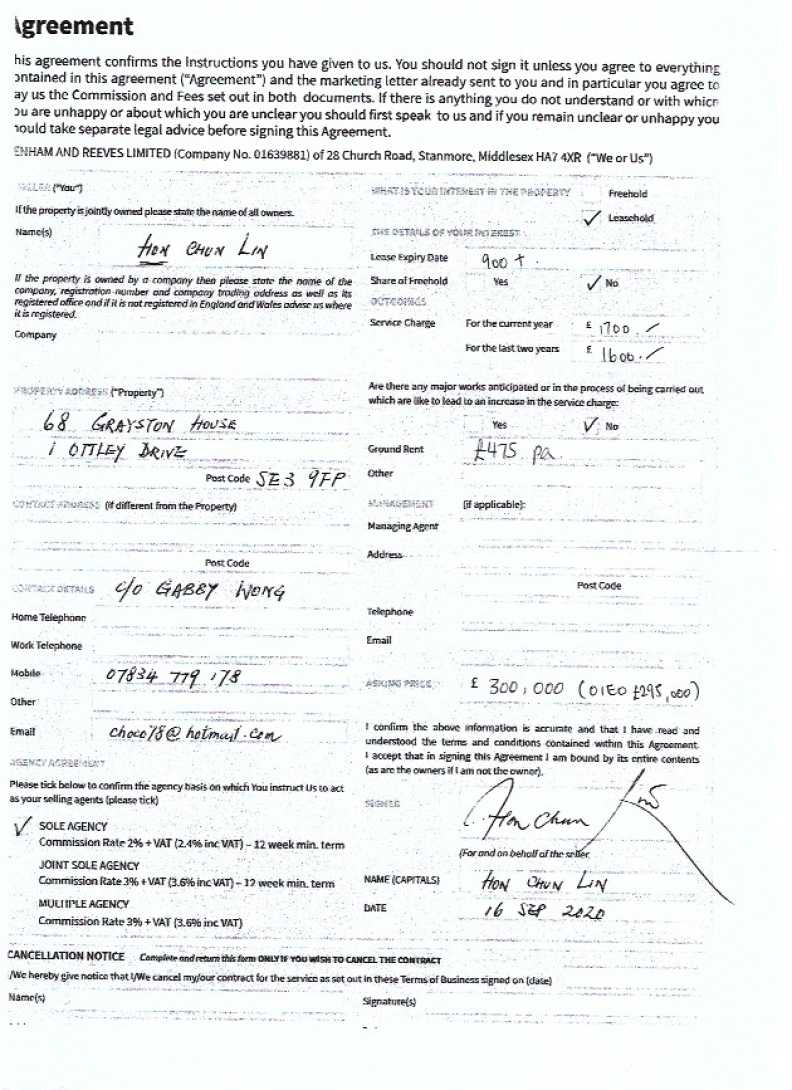 greement
his agreement confirms the Instructions you have given to us. You should not sign it unless you agree to everything
ontained in this agreement ("Agreement") and the marketing letter already sent to you and in particular you agree to
ay us the Commission and Fees set out in both documents. If there is anything you do not understand or with which
ou are unhappy or about which you are unclear you should first speak to us and if you remain unclear or unhappy you
hould take separate legal advice before signing this Agreement.
ENHAM AND REEVES LIMITED (Company No. 01639881) of 28 Church Road, Stanmore, Middlesex HA7 4XR ("We or Us")
SELLER ("You")
If the property is jointly owned please state the name of all owners.
Name(s)
HON CHUN LIN
If the property is owned by a company then please state the name of the
company, registration number and company trading address as well as its
registered office and if it is not registered in England and Wales advise us where
it is registered.
Company
PROPERTY ADDRESS ("Property")
68 GRAYSTON HOUSE
1 OTTLEY DRIVE
Post Code SE3 9FP
CONTACT ADDRESS (if different from the Property)
Post Code
CONTACT DETAILS c/o GABBY WONG
Home Telephone
Work Telephone
Mobile 07834 779 178
Other
Email choco78@hotmail.com
AGENCY AGREEMENT
Please tick below to confirm the agency basis on which You instruct Us to act
as your selling agents (please tick)
✓ SOLE AGENCY
Commission Rate 2% + VAT (2.4% inc VAT) – 12 week min. term
JOINT SOLE AGENCY
Commission Rate 3% + VAT (3.6% inc VAT) – 12 week min. term
MULTIPLE AGENCY
Commission Rate 3% + VAT (3.6% inc VAT)
WHAT IS YOUR INTEREST IN THE PROPERTY Freehold
✓ Leasehold
THE DETAILS OF YOUR INTEREST
Lease Expiry Date 900 +
Share of Freehold Yes ✓ No
OUTGOINGS
Service Charge For the current year £ 1700
For the last two years £ 1600
Are there any major works anticipated or in the process of being carried out
which are like to lead to an increase in the service charge:
Yes ✓ No
Ground Rent £475 pa.
Other
MANAGEMENT (if applicable):
Managing Agent
Address
Post Code
Telephone
Email
ASKING PRICE £ 300,000 (OIEO £295,000)
I confirm the above information is accurate and that I have read and
understood the terms and conditions contained within this Agreement.
I accept that in signing this Agreement I am bound by its entire contents
(as are the owners if I am not the owner).
SIGNED Hon Chun Lin
(For and on behalf of the seller
NAME (CAPITALS) HON CHUN LIN
DATE 16 SEP 2020
CANCELLATION NOTICE Complete and return this form ONLY IF YOU WISH TO CANCEL THE CONTRACT
/We hereby give notice that I/We cancel my/our contract for the service as set out in these Terms of Business signed on (date)
Name(s) Signature(s)